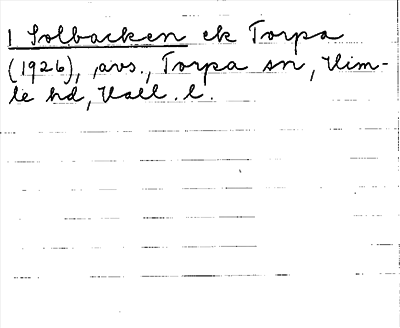 1 Solbacken ek Torpa
(1926), avs., Torpa sn, Him-
le hd, Hall. l.